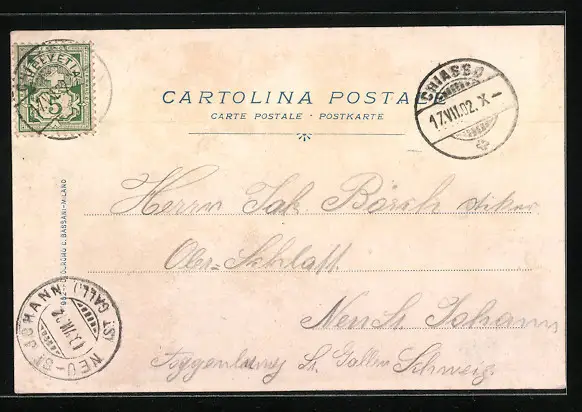 HELVETIA
5
CARTOLINA POSTA
CARTE POSTALE - POSTKARTE
CHIASSO
17.VII.02.X-
Herrn Jak. Bösch
Ober-Schlatt
Neu St. Johann
Toggenburg St. Gallen Schweiz
BASSANI-MILANO
NEU-ST. JOHANN
(ST. GALL.)